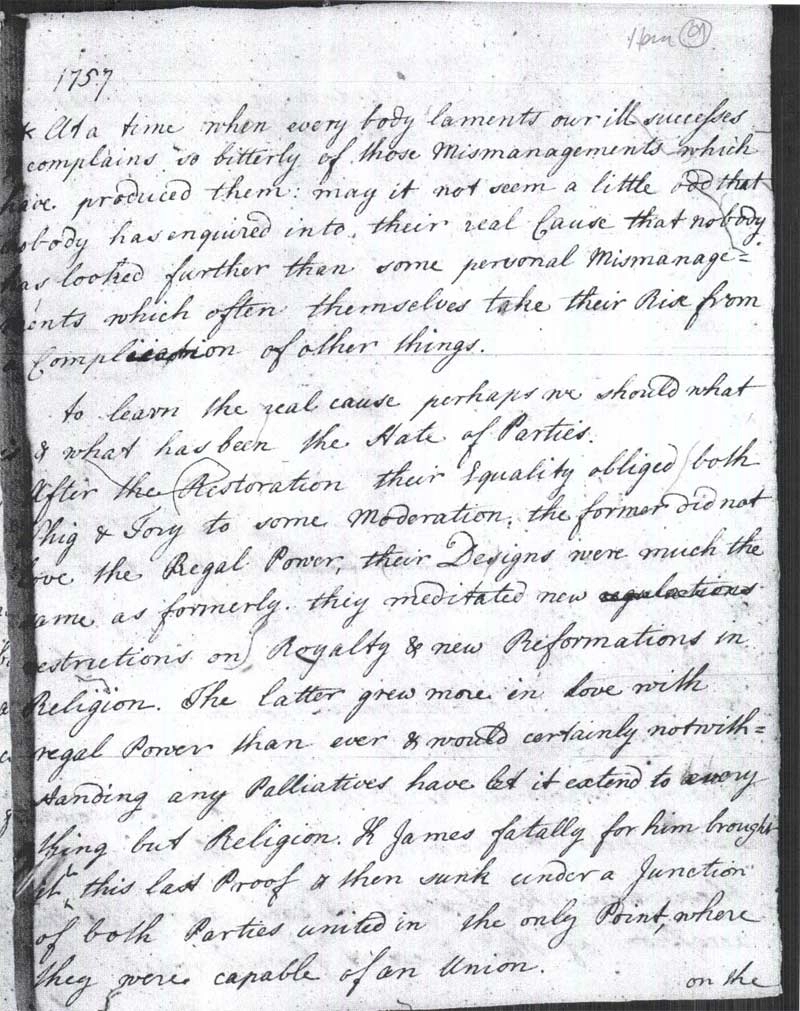 1757
At a time when every body laments our ill successes
complains so bitterly of those Mismanagements which
have produced them: may it not seem a little odd that
nobody has enquired into their real Cause that nobody
has looked further than some personal Mismanage=
ments which often themselves take their Rise from
a Complication of other things.
to learn the real cause perhaps we should what
is & what has been the State of Parties.
After the Restoration their Equality obliged both
Whig & Tory to some Moderation, the former did not
love the Regal Power, their Designs were much the
same as formerly. they meditated new regulations
restrictions on Royalty & new Reformations in
Religion. The latter grew more in love with
regal Power than ever & would certainly notwith=
standing any Palliatives have let it extend to every
thing but Religion. K James fatally for him brought
it this last Proof & then sunk under a Junction
of both Parties united in the only Point, where
they were capable of an Union.
on the